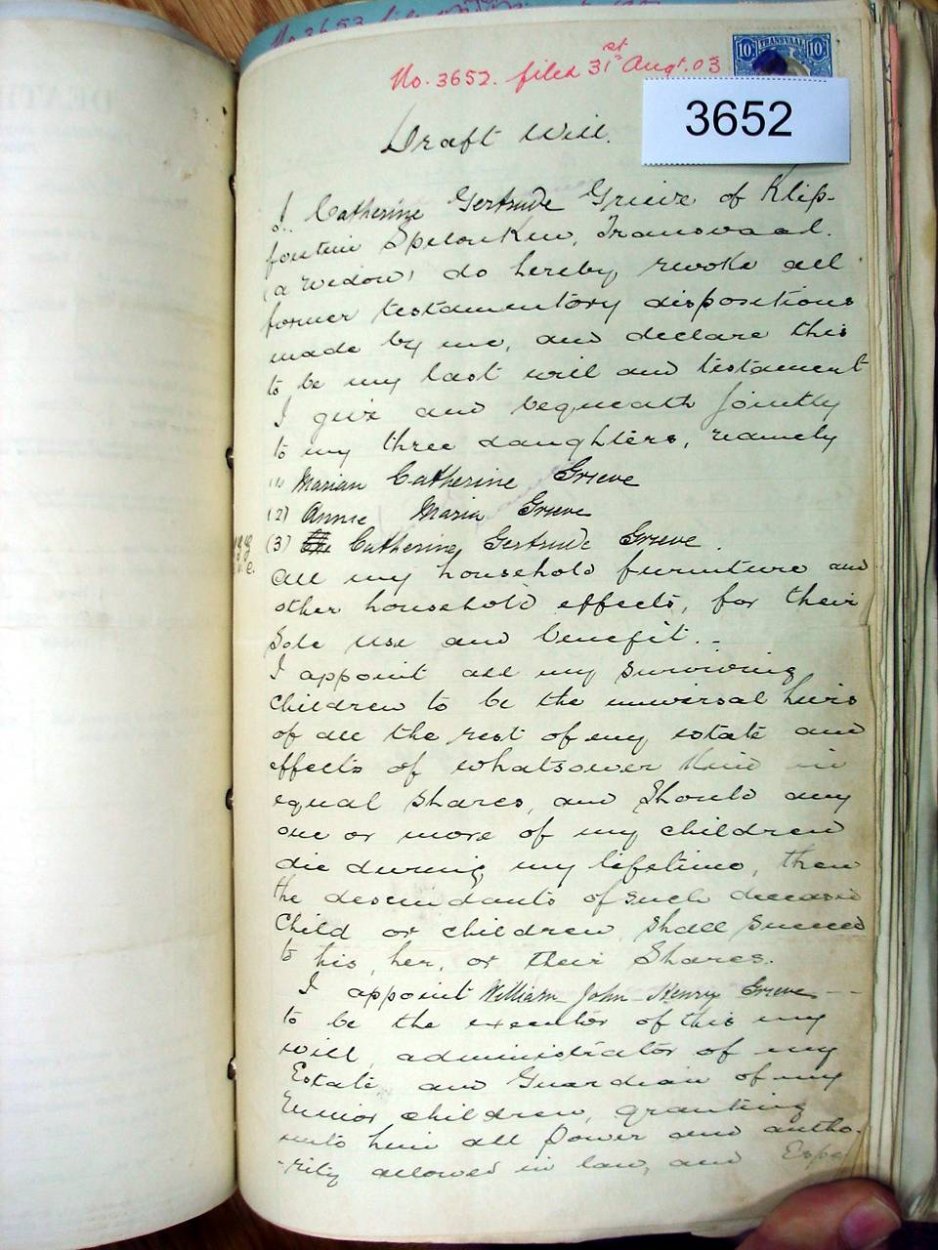 No. 3652. filed 31st Augt. 03
10d TRANSVAAL 10d
3652
Draft Will.
I, Catherine Gertrude Grieve of Klip-
fontein Spelonken, Transvaal.
(a widow) do hereby revoke all
former testamentory dispositions
made by me, and declare this
to be my last will and testament
I give and bequeath jointly
to my three daughters, namely
(1) Marian Catherine Grieve
(2) Annie Maria Grieve
(3) Catherine Gertrude Grieve.
all my household furniture and
other household effects, for their
sole use and benefit.
I appoint all my surviving
children to be the universal heirs
of all the rest of my estate and
effects of whatsoever kind in
equal shares, and should any
one or more of my children
die during my lifetime, then
the descendants of such deceased
child or children shall succeed
to his, her, or their shares.
I appoint William John Henry Grieve
to be the executor of this my
will, administrator of my
Estate and Guardian of my
minor children, granting
unto him all power and autho-
-rity allowed in law, and Espe
DEATH